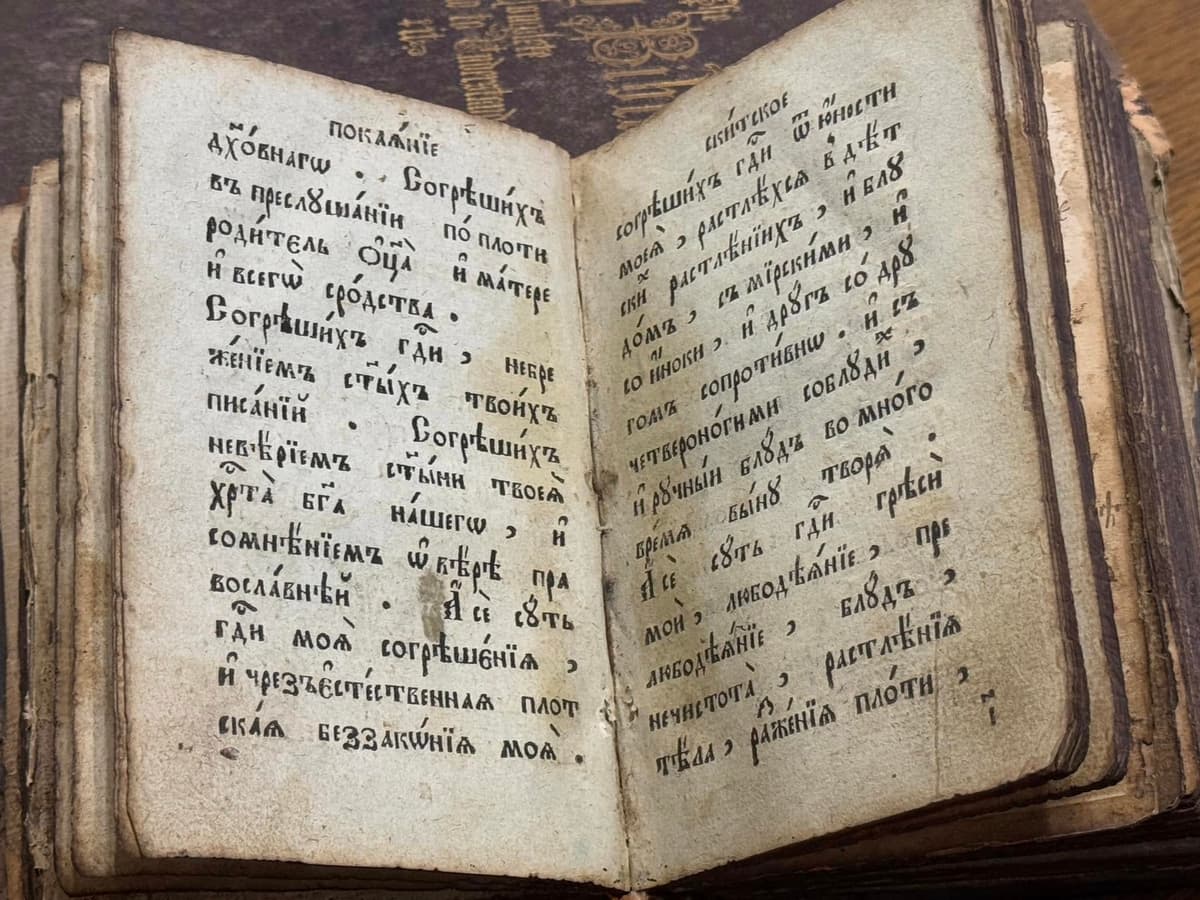 покаѧ́нїе
дх҃о́внагѡ . Согрѣши́хъ
въ преслꙋша́нїи по́ плоти
роди́тель ѻ҆ц҃а̀ и҆ ма́тере
и҆ всегѡ̀ сро́дства .
Согрѣши́хъ гд҇и , небре
же́нїемъ ст҃ы́хъ твои́хъ
писа́нїй . Согрѣши́хъ
невѣ́рїемъ ст҃ы́ни твоеѧ̀
хр҇та̀ бг҃а на́шегѡ , и҆
сомнѣ́нїемъ ѡ҆ вѣ́рѣ пра
восла́внѣй . А҆ сѐ сꙋ́ть
гд҇и моѧ̀ согрѣше́нїѧ ,
и҆ чрезъе҆сте́ственнаѧ плот
ска́ѧ беззакѡ́нїѧ моѧ̀ .
ски́тское
согрѣши́хъ гд҇и ѿ ю҆́ности
моеѧ̀ , растлѣ́хсѧ в̾ дѣ́т
скихъ растлѣ́нїихъ , и҆ блꙋ
до́мъ , съ мїрски́ми , и҆
со и҆́ноки , и҆ дрꙋ́гъ со́ дрꙋ
гомъ сопроти́внѡ . и҆ съ
четвероно́гими соблꙋди́х ,
и҆ рꙋчны́й блꙋ́дъ во мно́го
вре́мѧ вы́нꙋ творѧ̀ .
А҆ сѐ сꙋ́ть гд҇и грѣсѝ
моѝ , любодѣѧ́нїе , пре
любодѣѧ́нїе , блꙋ́дъ ,
нечистота̀ , растлѣ́нїѧ
тѣ́ла , раⷤже́нїѧ пло́ти ,